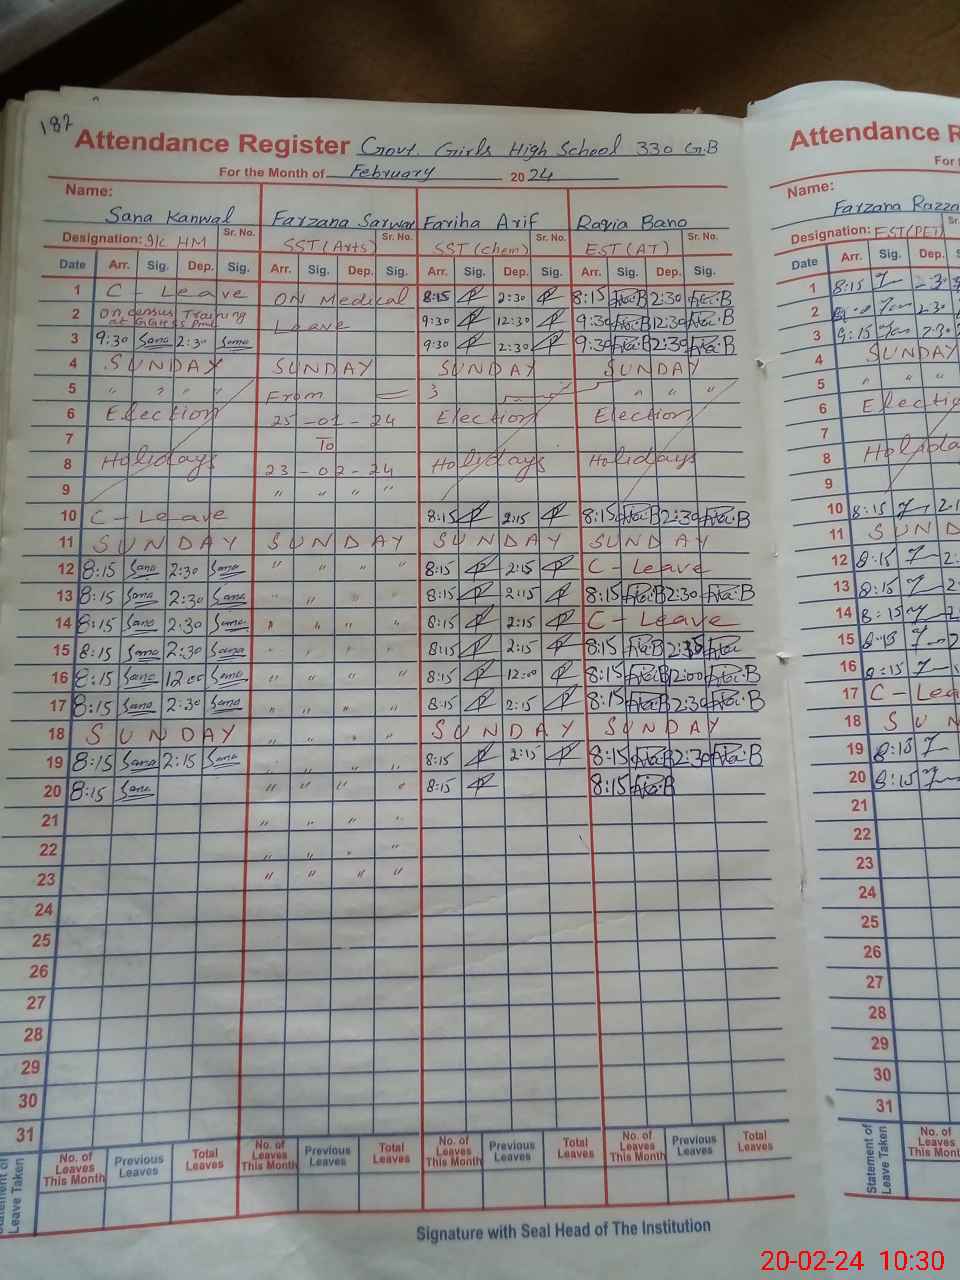 187
Attendance Register Govt. Girls High School 330 G.B
For the Month of February 2024
Name:
Sana Kanwal Farzana Sarwar Fariha Arif Raqia Bano
Designation: I/c HM Sr. No. SST (Arts) Sr. No. SST (chem) Sr. No. EST (AT) Sr. No.
Date Arr. Sig. Dep. Sig. Arr. Sig. Dep. Sig. Arr. Sig. Dep. Sig. Arr. Sig. Dep. Sig.
1 C - Leave ON Medical 8:15 2:30 8:15 2:30
2 On census Training at Leave 9:30 12:30 9:30 12:30
3 9:30 Sana 2:30 Sana 9:30 2:30 9:30 2:30
4 SUNDAY SUNDAY SUNDAY SUNDAY
5 " " " " From " " "
6 Election 25-01-24 Election Election
7 To
8 Holidays 23-02-24 Holidays Holidays
9 " " " "
10 C - Leave 8:15 2:15 8:15 2:30
11 SUNDAY SUNDAY SUNDAY SUNDAY
12 8:15 Sana 2:30 Sana " " " " 8:15 2:15 C - Leave
13 8:15 Sana 2:30 Sana " " " " 8:15 2:15 8:15 2:30
14 8:15 Sana 2:30 Sana " " " " 8:15 2:15 C - Leave
15 8:15 Sana 2:30 Sana " " " " 8:15 2:15 8:15
16 8:15 Sana 12:00 Sana " " " " 8:15 12:00 8:15 12:00
17 8:15 Sana 2:30 Sana " " " " 8:15 2:15 8:15 2:30
18 SUNDAY " " " " SUNDAY SUNDAY
19 8:15 Sana 2:15 Sana " " " " 8:15 2:15 8:15 2:30
20 8:15 Sana " " " " 8:15 8:15
21 " " " "
22 " " " "
23 " " " "
24
25
26
27
28
29
30
31
Statement of Leave Taken
No. of Leaves This Month Previous Leaves Total Leaves No. of Leaves This Month Previous Leaves Total Leaves No. of Leaves This Month Previous Leaves Total Leaves No. of Leaves This Month Previous Leaves Total Leaves
Signature with Seal Head of The Institution
Attendance R
For
Name:
Farzana Razza
Designation: EST (PET)
Date Arr. Sig. Dep.
1 8:15 2:3
2 2:30
3 9:15 2:30
4 SUNDAY
5 " " "
6 Electi
7
8 Holida
9
10 8:15 2:1
11 SUND
12 8:15 2:
13 8:15 2
14 8:15 2
15 8:15 2
16 8:15
17 C - Lea
18 SUN
19 8:15
20 8:15
21
22
23
24
25
26
27
28
29
30
31
Statement of Leave Taken
No. of Leaves This Month
20-02-24 10:30